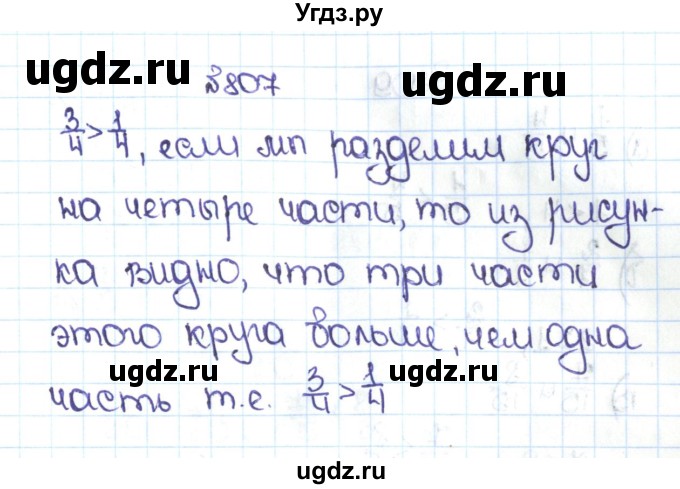 Угдз.ру
ugdz.ru ugdz.ru
№807
3/4 > 1/4, если мы разделим круг
на четыре части, то из рисун-
ка видно, что три части
этого круга больше, чем одна
ugdz.ru ugdz.ru
часть т.е. 3/4 > 1/4
ugdz.ru